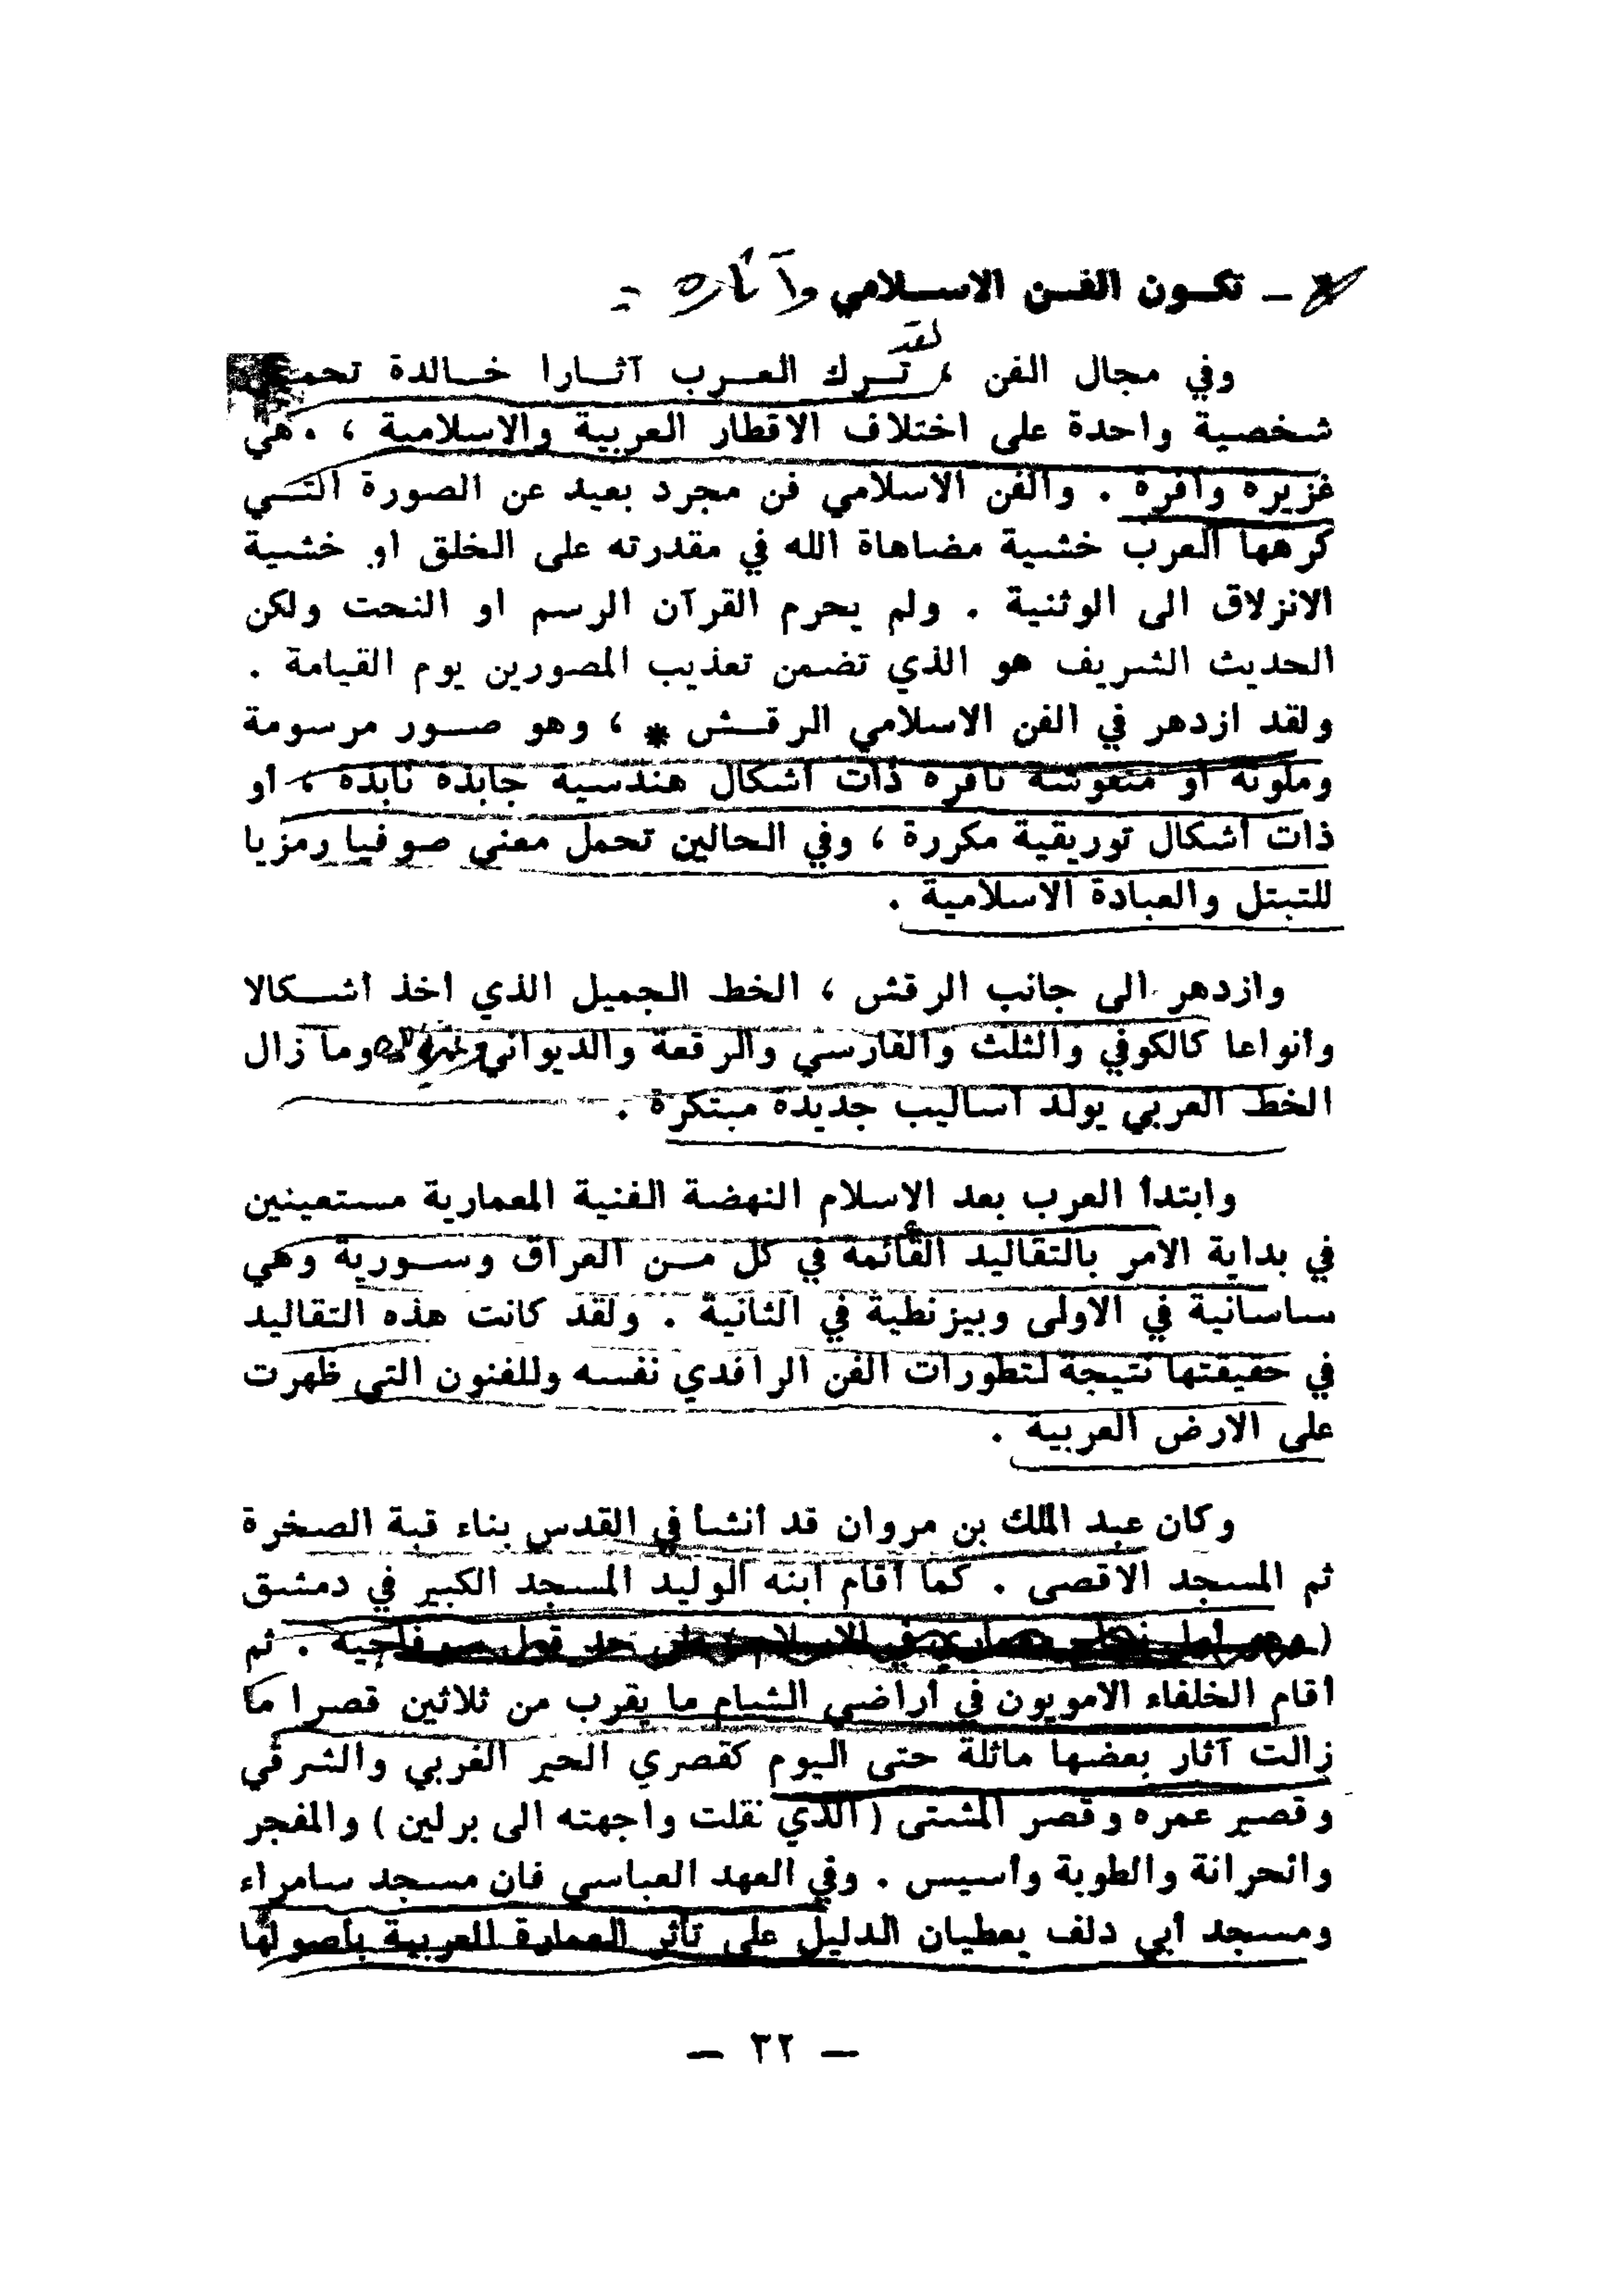 ـ تكـون الفـن الاسـلامي وآثاره :
لقد
وفي مجال الفن ، تـرك العـرب آثـارا خـالدة تحمـ
شخصية واحدة على اختلاف الاقطار العربية والاسلامية ، هي
غزيرة وافرة . والفن الاسلامي فن مجرد بعيد عن الصورة التـي
كرهها العرب خشية مضاهاة الله في مقدرته على الخلق او خشية
الانزلاق الى الوثنية . ولم يحرم القرآن الرسم او النحت ولكن
الحديث الشريف هو الذي تضمن تعذيب المصورين يوم القيامة .
ولقد ازدهر في الفن الاسلامي الرقـش * ، وهو صـور مرسومة
وملونة أو منقوشة نافرة ذات أشكال هندسية جابذة نابذة ، أو
ذات أشكال توريقية مكررة ، وفي الحالين تحمل معنى صوفيا رمزيا
للتبتل والعبادة الاسلامية .
وازدهر الى جانب الرقش ، الخط الجميل الذي اخذ أشـكالا
وأنواعا كالكوفي والثلث والفارسي والرقعة والديواني وما زال
الخط العربي يولد أساليب جديدة مبتكرة .
وابتدأ العرب بعد الإسلام النهضة الفنية المعمارية مستعينين
في بداية الامر بالتقاليد القائمة في كل مـن العراق وسـورية وهي
ساسانية في الاولى وبيزنطية في الثانية . ولقد كانت هذه التقاليد
في حقيقتها نتيجة لتطورات الفن الرافدي نفسه وللفنون التي ظهرت
على الارض العربية .
وكان عبد الملك بن مروان قد أنشأ في القدس بناء قبة الصخرة
ثم المسجد الاقصى . كما أقام ابنه الوليد المسجد الكبير في دمشق
( وهو أول نجاح معماري في الاسلام ) على حد قول سوفاجيه . ثم
أقام الخلفاء الامويون في أراضي الشام ما يقرب من ثلاثين قصرا ما
زالت آثار بعضها ماثلة حتى اليوم كقصري الحير الغربي والشرقي
وقصير عمره وقصر المشتى ( الذي نقلت واجهته الى برلين ) والمفجر
والحرانة والطوبة وأسيس . وفي العهد العباسي فان مسجد سامراء
ومسجد أبي دلف يعطيان الدليل على تأثر العمارة العربية بأصولها
ـ ٣٢ ـ